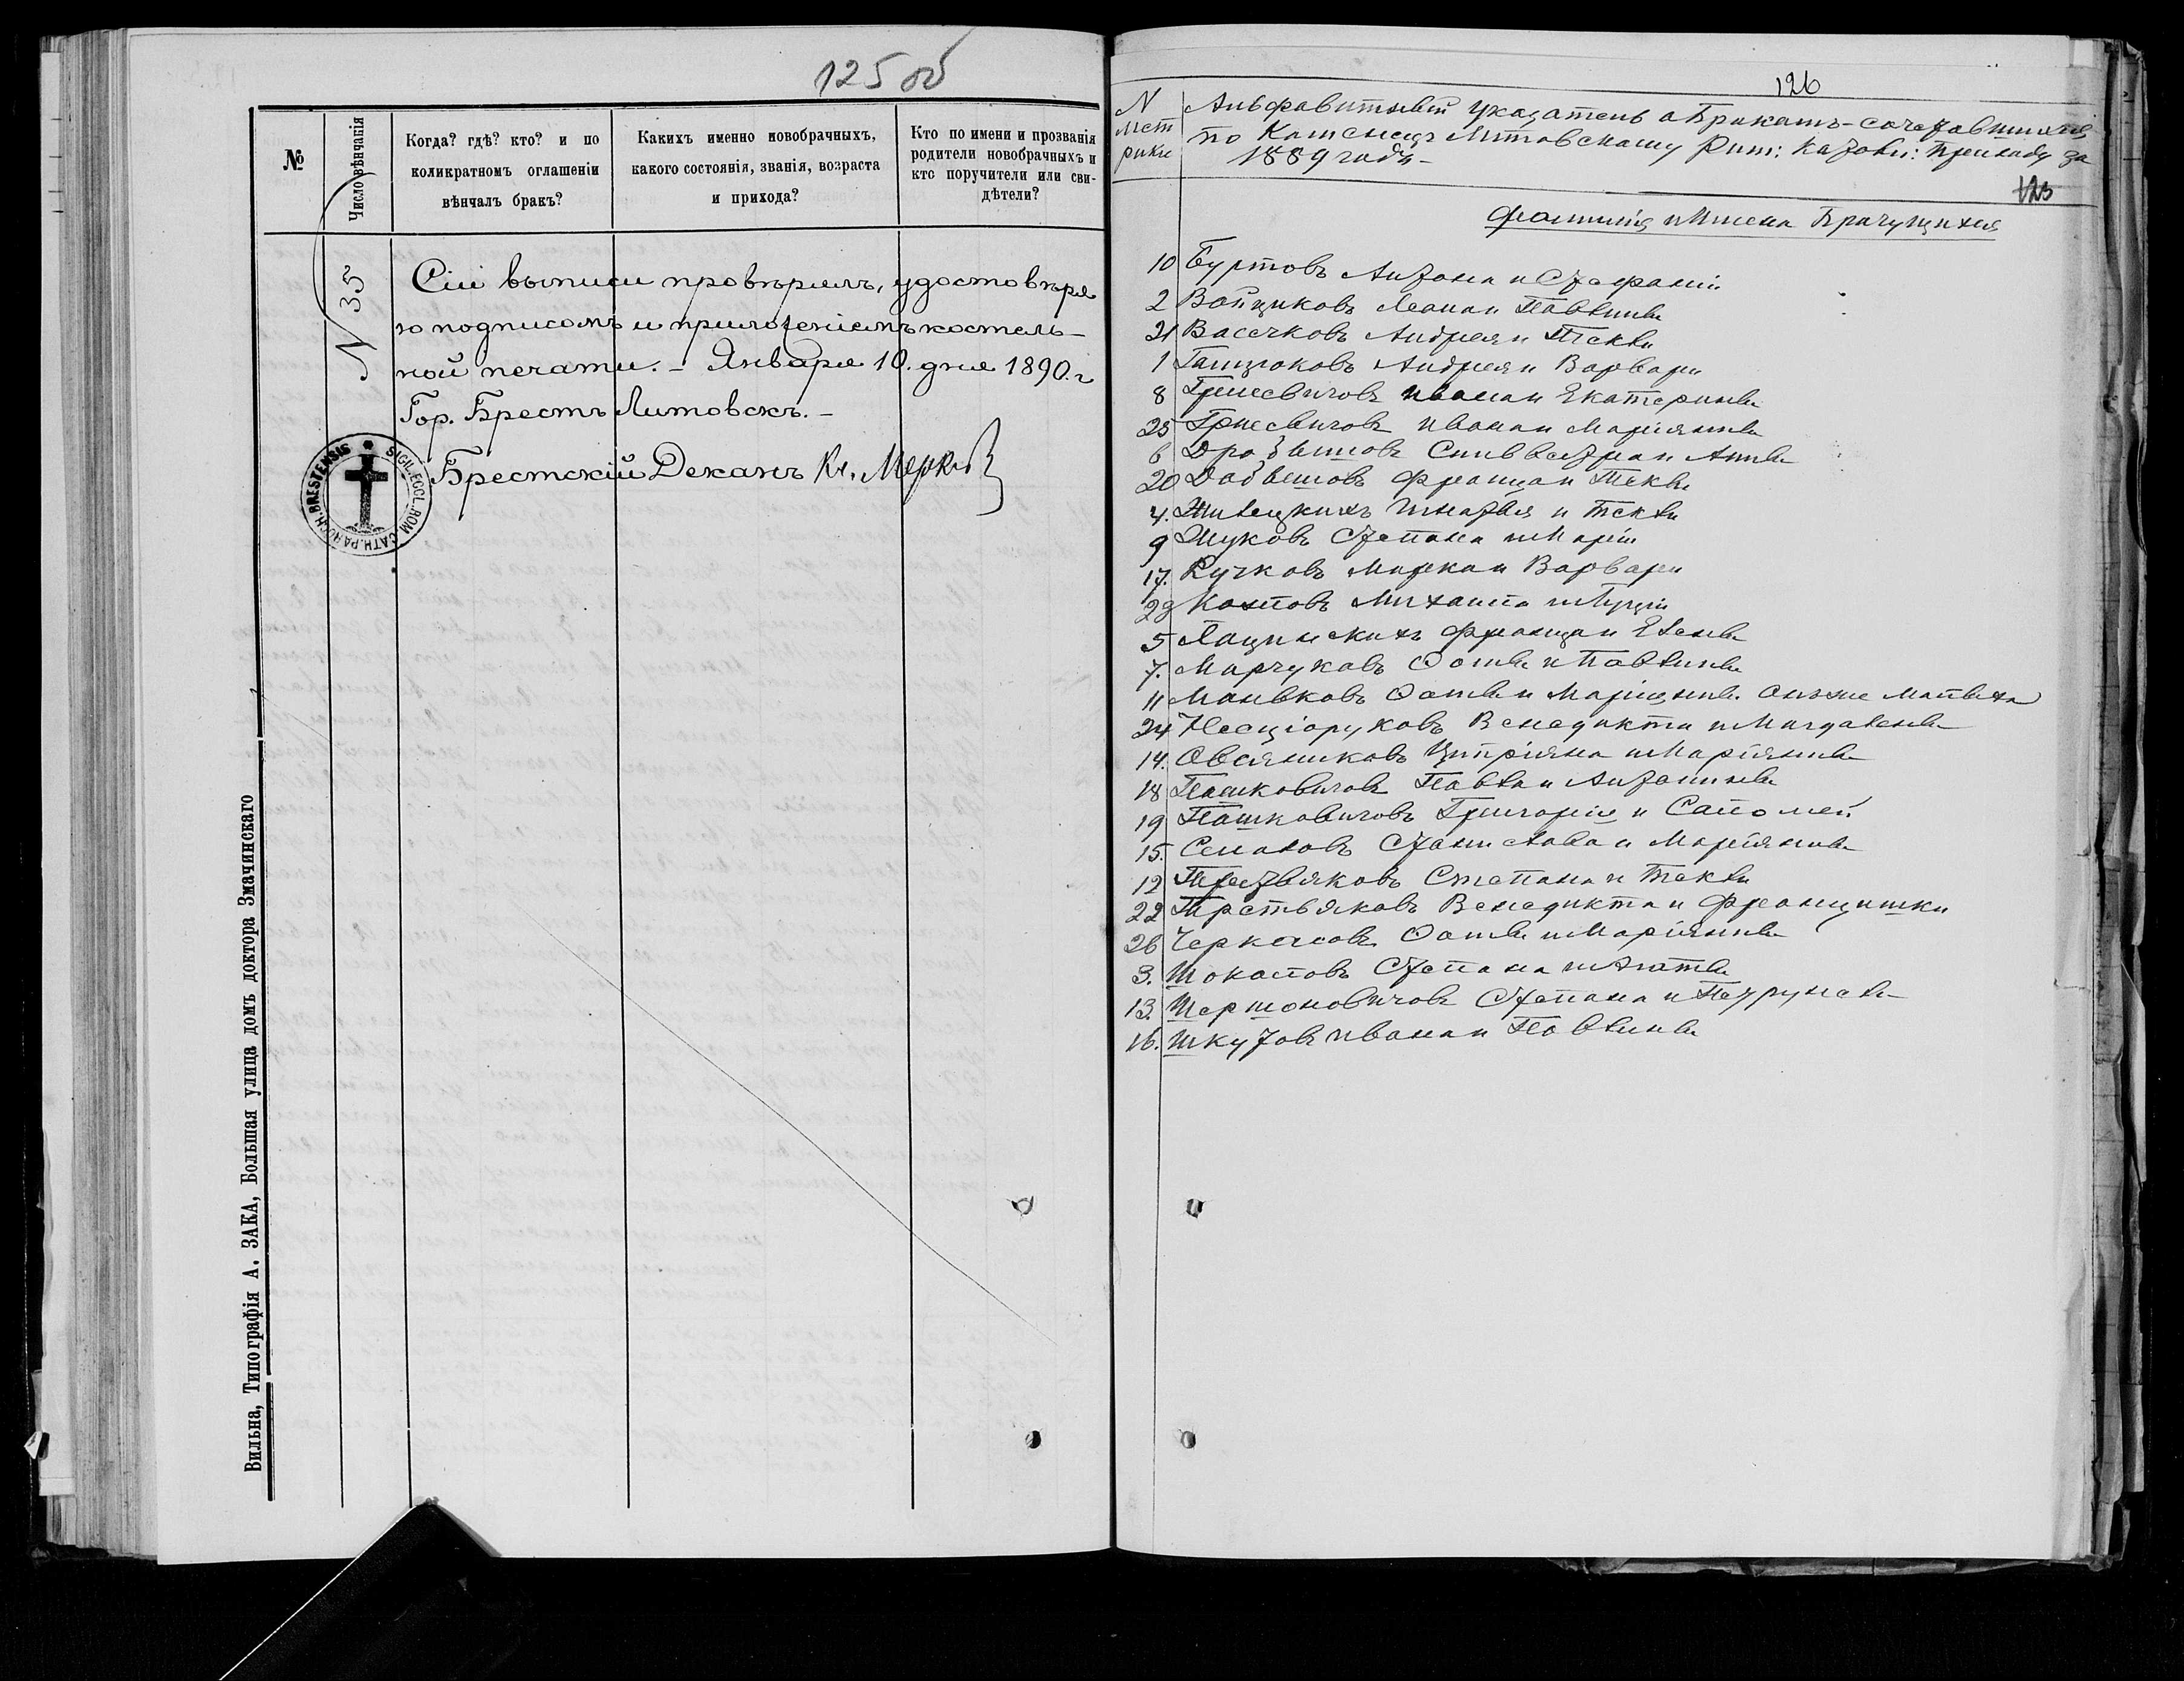 125 об
№
Число вѣнчанія
Когда? гдѣ? кто? и по
коликратномъ оглашеніи
вѣнчалъ бракъ?
Какихъ именно новобрачныхъ,
какого состоянія, званія, возраста
и прихода?
Кто по имени и прозванія
родители новобрачныхъ и
кто поручители или сви-
дѣтели?
N 35
Сіи выписи провѣрилъ, удостовѣря
ю подписомъ и приложеніемъ костель-
ной печати. – Января 10. дня 1890. г
Гор. Брестъ Литовскъ. –
Брестскій Деканъ Кс.
SIGIL. ECCL. ROM. CATH. PAROCH. BRESTENSIS
Вильна, Типографія А. ЗАКА, Большая улица домъ доктора Змачинскаго
126
N
мет
рики
Альфавитный Указатель о Бракомъ-сочетавшихся
по Каменецъ Литовскому Рим: Катол: Приходу за
1889 годъ –
125
Фамилія и Имена Брачущихся
10 Буртовъ Антона и Стефаніи
2 Войциковъ Леона и Павлины
21 Васечковъ Андрея и Текли
1 Гацуковъ Андрея и Варвары
8 Гриневичовъ Ивана и Екатерины
25 Гриневичовъ Ивана и Маріянны
6 Сильвестра и Анны
20 Франца и Текли
4. Игнатія и Текли
9 Жуковъ Степана и Маріи
17. Кучковъ Марка и Варвары
23 Михаила и Луціи
5 Лацинскихъ Франца и Елены
7. Марчуковъ Фомы и Павлины
11 Маньковъ Фомы и Маріянны.
24 Несціоруковъ Венедикта и Магдалены
14. Овсяниковъ Ципріяна и Маріянны
18 Пашковичовъ Павла и Антонины
19 Пашковичовъ Григорія и Саломеи
15. Станислава и Маріянны
12 Третьяковъ Степана и Текли
22 Третьяковъ Венедикта и Францишки
26 Черкасовъ Фомы и Маріянны
3. Шокаловъ Степана и Агаты
13. Шершоновичовъ Степана и Петрунели
16. Шкутовъ Ивана и Павлины